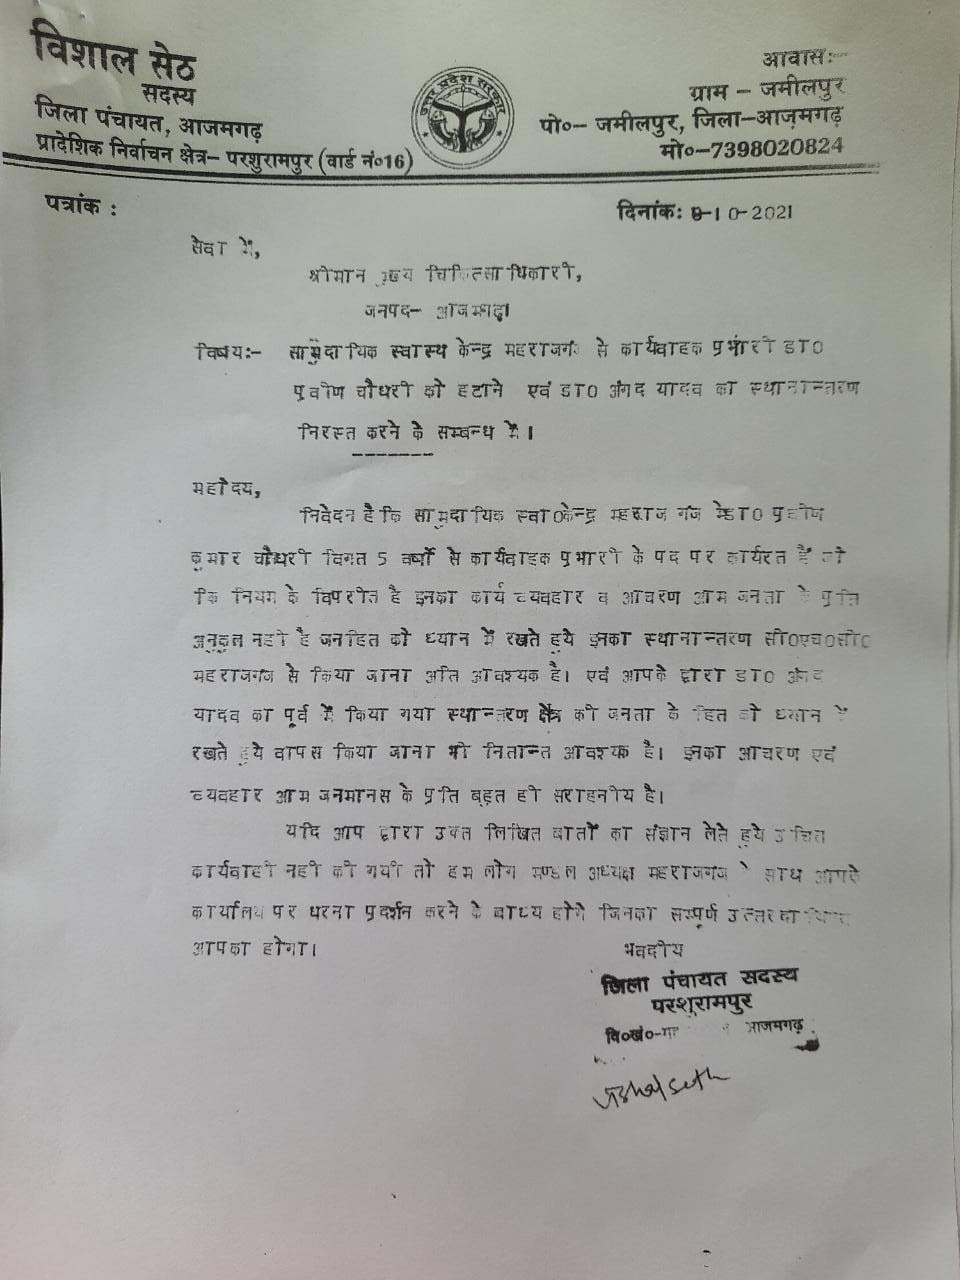 विशाल सेठ
सदस्य
जिला पंचायत, आजमगढ़
प्रादेशिक निर्वाचन क्षेत्र– परशुरामपुर (वार्ड नं०16)
उत्तर प्रदेश सरकार
आवासः–
ग्राम – जमीलपुर
पो०– जमीलपुर, जिला–आज़मगढ़
मो०–7398020824
पत्रांक :
दिनांकः 8-10-2021
सेवा में,
श्रीमान मुख्य चिकित्साधिकारी,
जनपद– आजमगढ़।
विषयः– सामुदायिक स्वास्थ केन्द्र महराजगंज से कार्यवाहक प्रभारी डा०
प्रवीण चौधरी को हटाने एवं डा० अंगद यादव का स्थानान्तरण
निरस्त करने के सम्बन्ध में।
महोदय,
निवेदन है कि सामुदायिक स्वा०केन्द्र महराजगंज में डा० प्रवीण
कुमार चौधरी विगत 5 वर्षों से कार्यवाहक प्रभारी के पद पर कार्यरत हैं जो
कि नियम के विपरीत है इनका कार्य व्यवहार व आचरण आम जनता के प्रति
अनुकूल नही है जनहित को ध्यान में रखते हुये इनका स्थानान्तरण सी०एच०सी०
महराजगंज से किया जाना अति आवश्यक है। एवं आपके द्वारा डा० अंगद
यादव का पूर्व में किया गया स्थान्तरण क्षेत्र की जनता के हित को ध्यान में
रखते हुये वापस किया जाना भी नितान्त आवश्यक है। इनका आचरण एवं
व्यवहार आम जनमानस के प्रति बहुत ही सराहनीय है।
यदि आप द्वारा उक्त लिखित बातों का संज्ञान लेते हुये उचित
कार्यवाही नही की गयी तो हम लोग मण्डल अध्यक्ष महराजगंज के साथ आपके
कार्यालय पर धरना प्रदर्शन करने के बाध्य होगे जिनका सम्पूर्ण उत्तरदायित्व
आपका होगा।
भवदीय
जिला पंचायत सदस्य
परशुरामपुर
वि०खं०- आजमगढ़
Vishal Seth